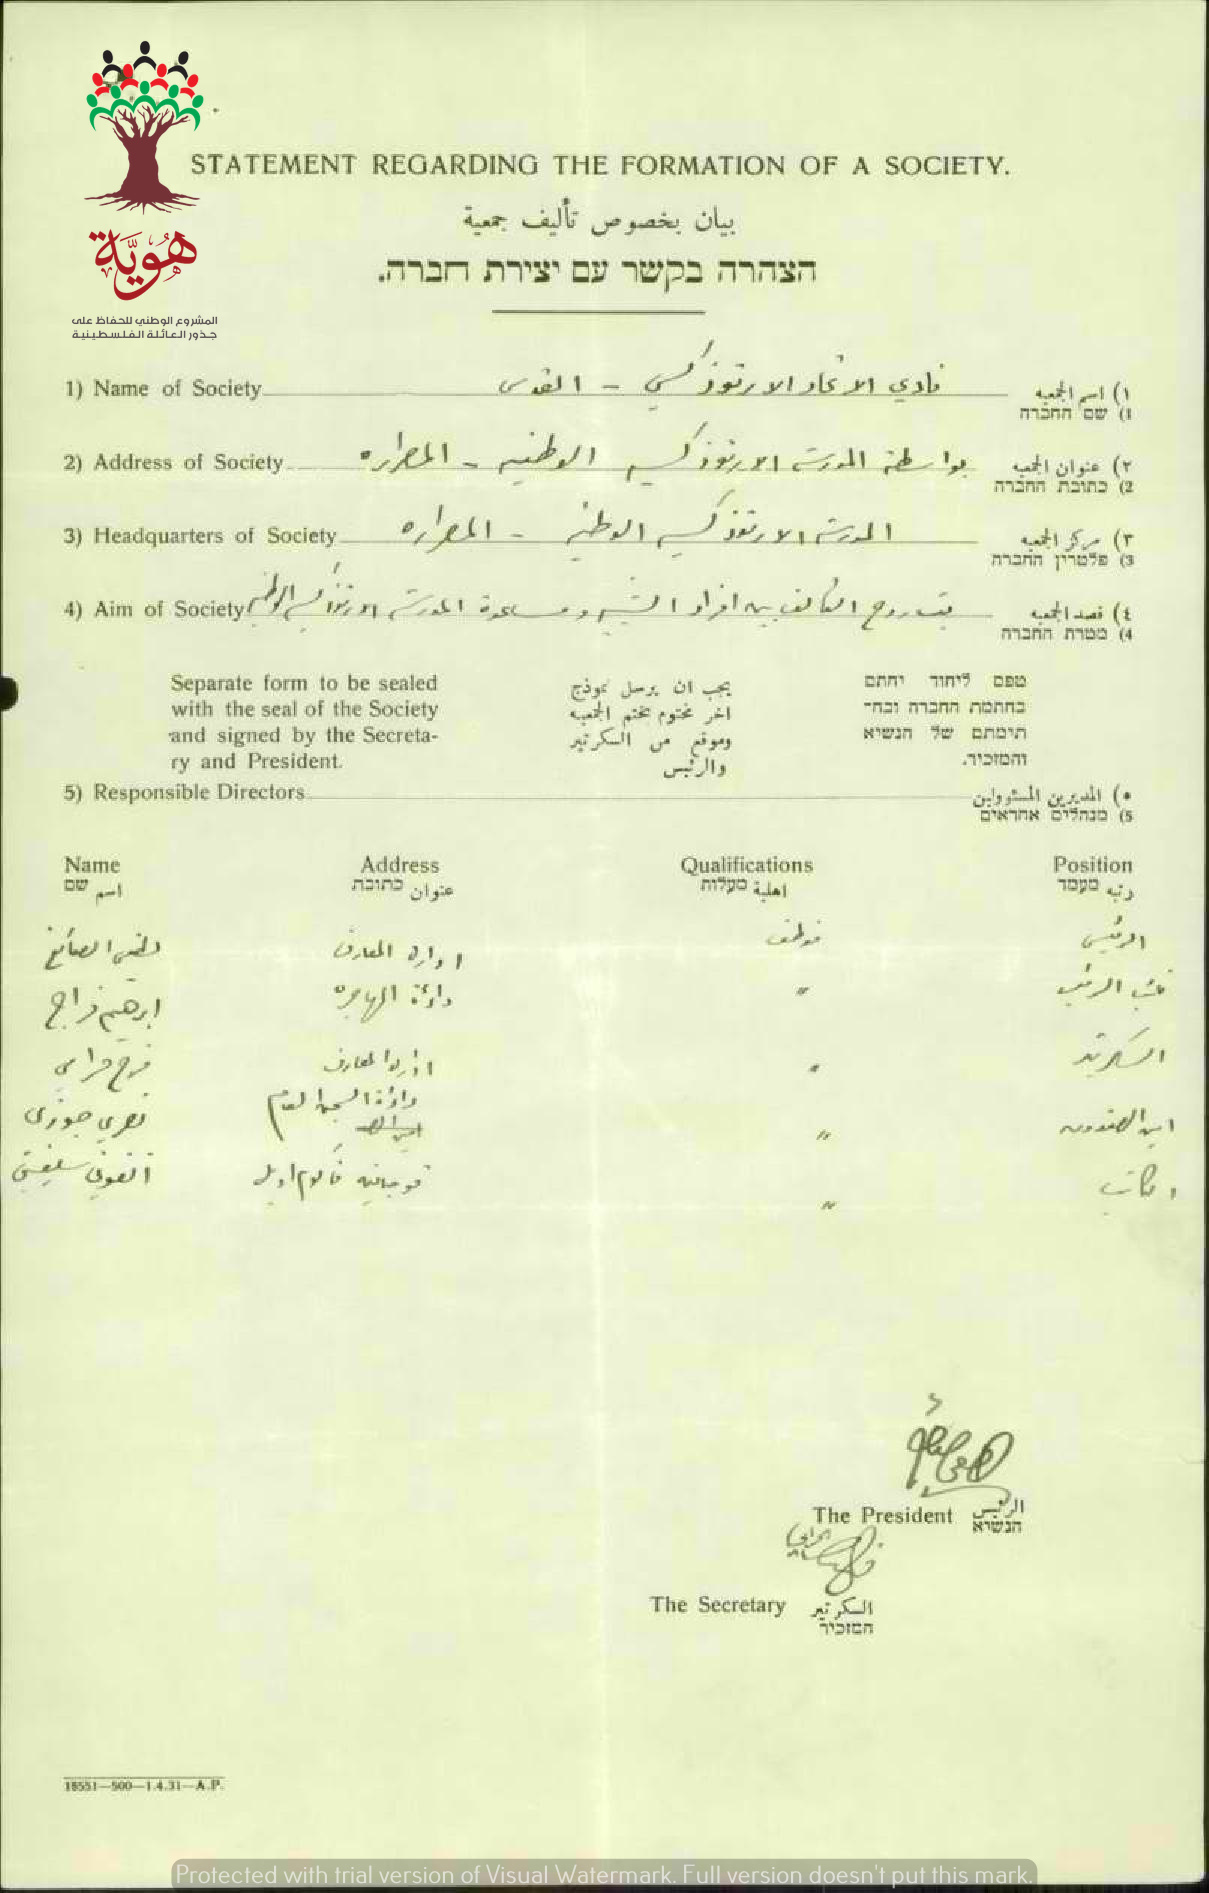 هُويّة
المشروع الوطني للحفاظ على
جذور العائلة الفلسطينية
STATEMENT REGARDING THE FORMATION OF A SOCIETY.
بيان بخصوص تأليف جمعية
הצהרה בקשר עם יצירת חברה.
1) Name of Society نادي الاتحاد الارثوذكسي - القدس ١) اسم الجمعيه
1) שם החברה
2) Address of Society بواسطة المدرسة الارثوذكسيه الوطنيه - المصراره ٢) عنوان الجمعيه
2) כתובת החברה
3) Headquarters of Society المدرسة الارثوذكسيه الوطنيه - المصراره ٣) مركز الجمعيه
3) פלטרין החברה
4) Aim of Society روح التآلف بين افراد ومساعدة المدرسة الارثوذكسيه الوطنيه ٤) قصد الجمعيه
4) מטרת החברה
Separate form to be sealed
with the seal of the Society
and signed by the Secreta-
ry and President.
يجب ان يرسل نموذج
اخر مختوم بختم الجمعيه
وموقع من السكرتير
والرئيس
טפס ליחוד יחתם
בחתמת החברה ובח־
תימתם של הנשיא
והמזכיר.
5) Responsible Directors ٥) المديرين المسئوولين
5) מנהלים אחראים
Name Address Qualifications Position
اسم שם عنوان כתובת اهلية מעלות رتبه מעמד
الصائغ ادارة المعارف موظف الرئيس
ابرهيم فراج دائرة المهاجره " نائب الرئيس
فرح ادارة المعارف " السكرتير
نصري جوزي دائرة السجن العام " امين الصندوق
امين الص
انطون " الكاتب
The President الرئيس
הנשיא
The Secretary السكرتير
המזכיר
18551—500—1.4.31—A.P.
Protected with trial version of Visual Watermark. Full version doesn't put this mark.